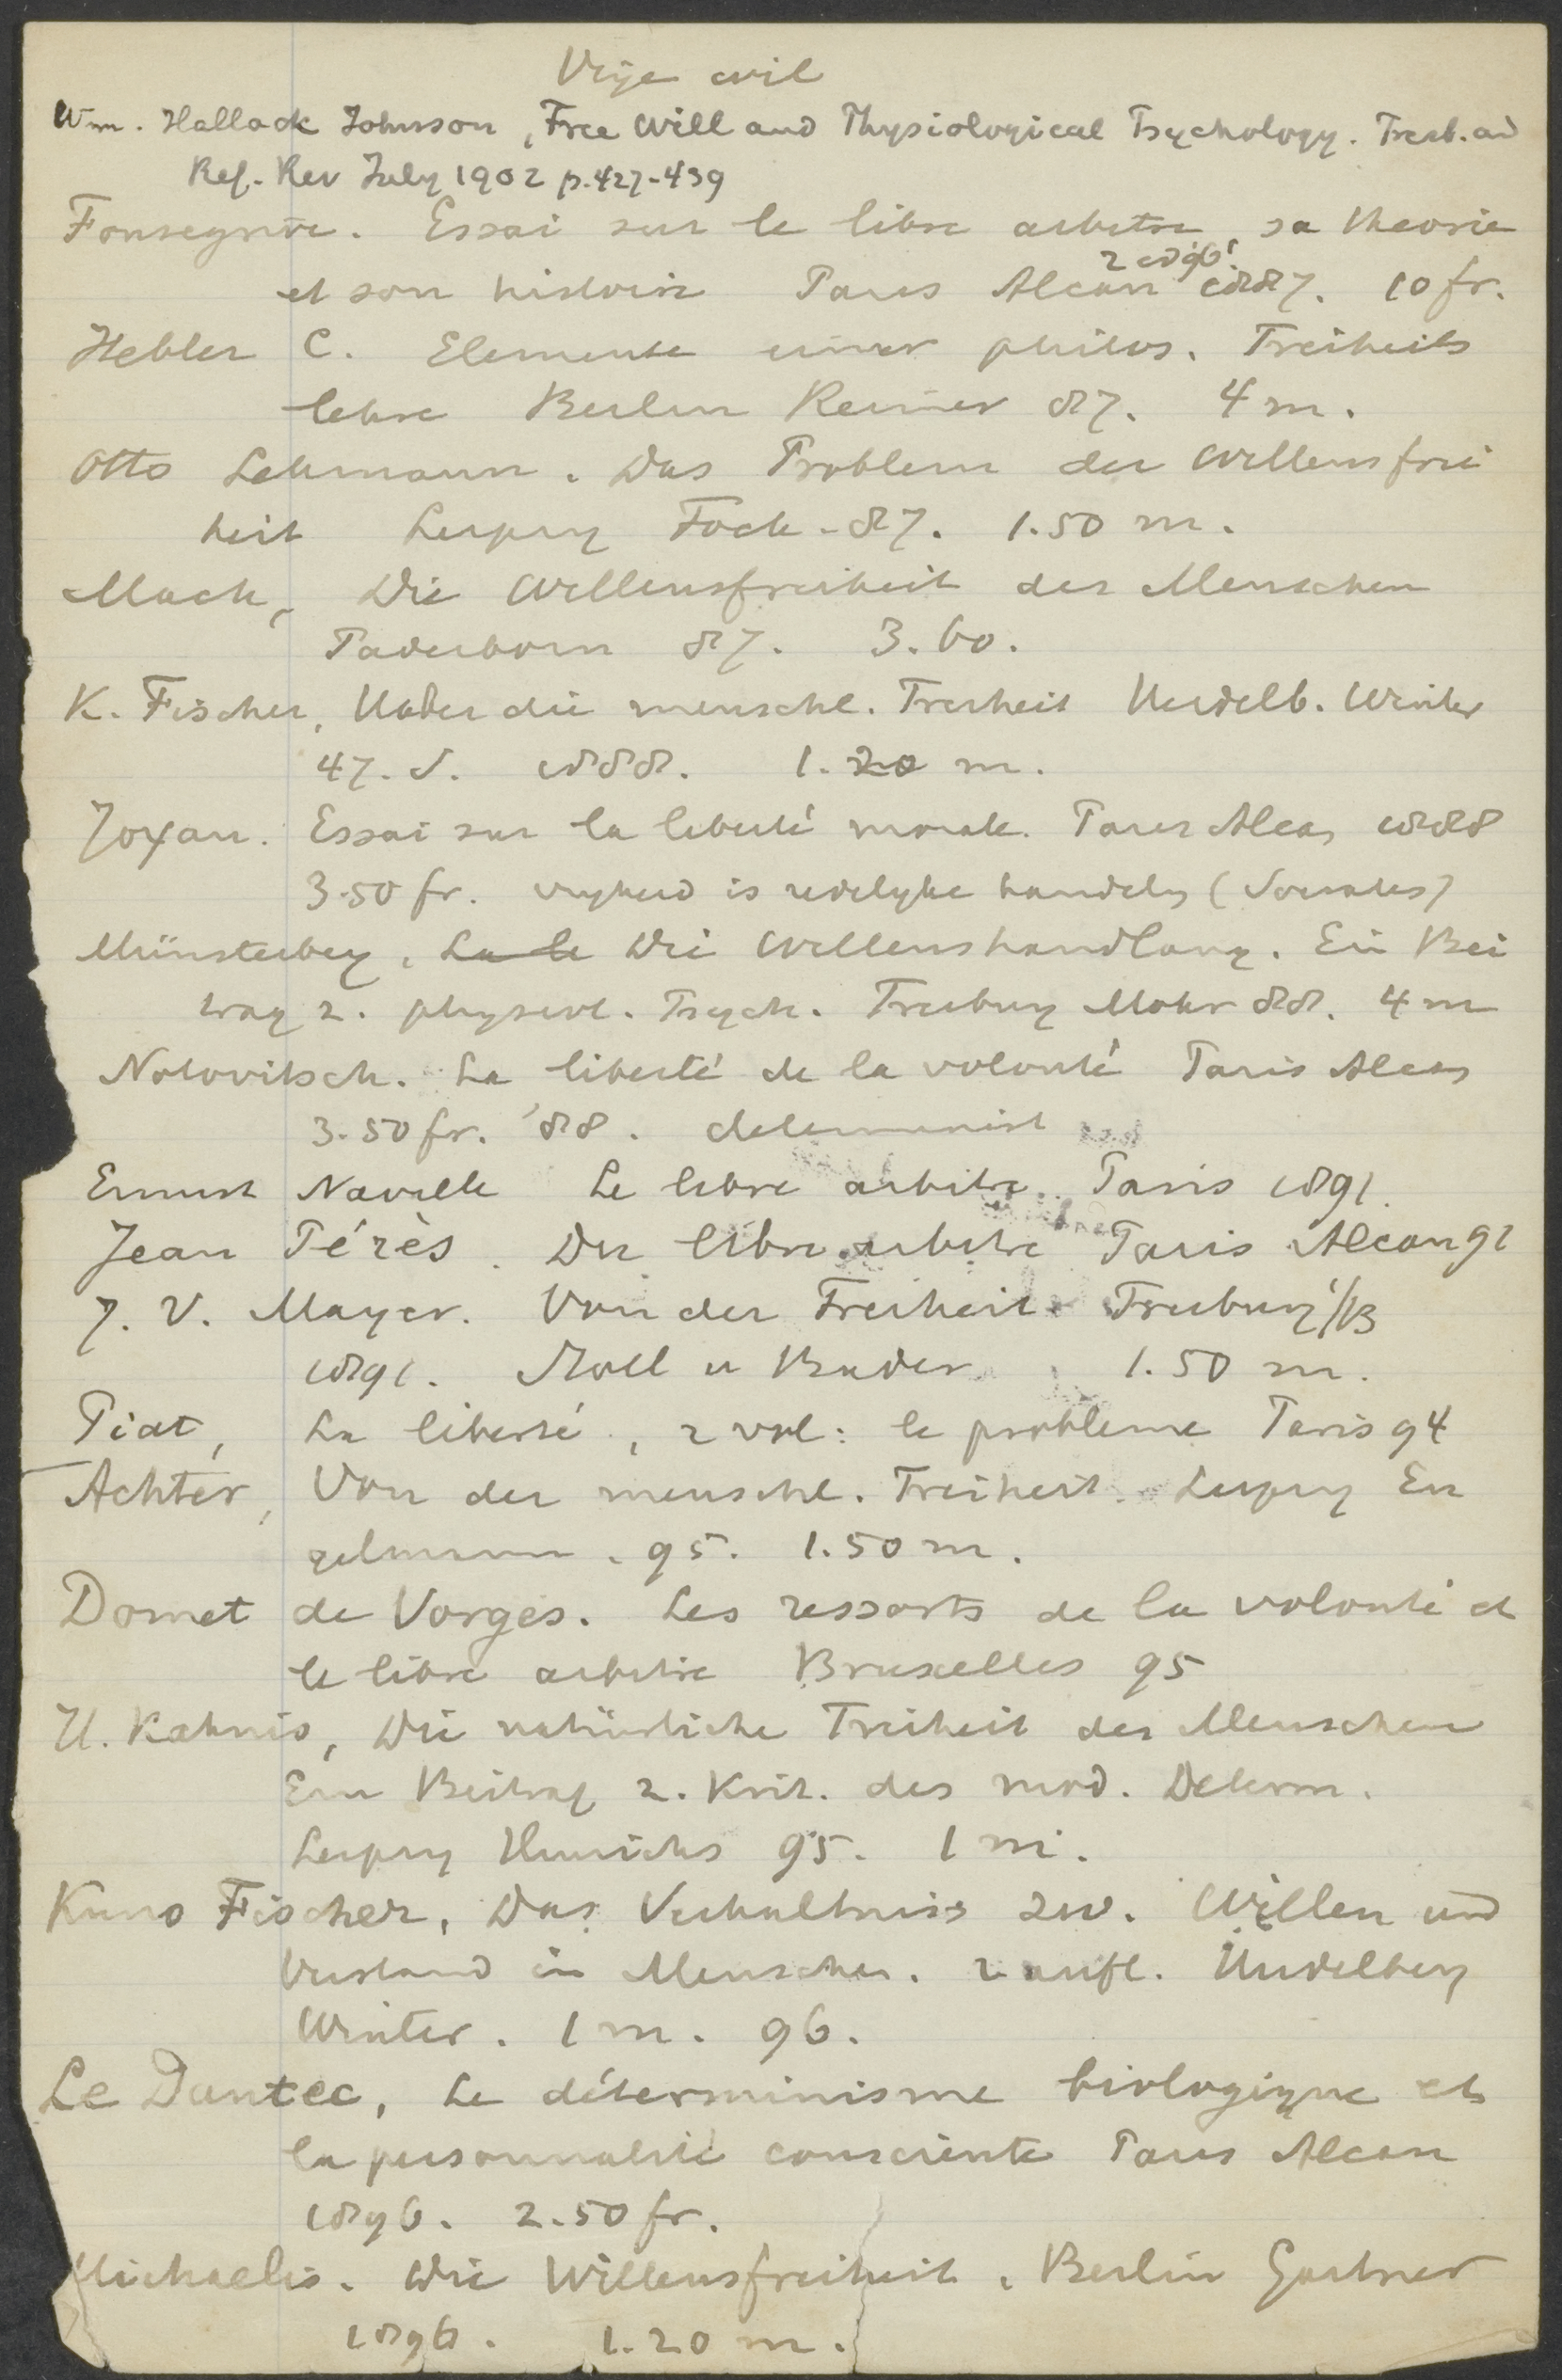 Vrije wil
Wm. Hallock Johnson, Free Will and Physiological Psychology. Presb. and
Ref. Rev July 1902 p. 427-439
Fonsegrive. Essai sur le libre arbitre, sa theorie
et son histoire Paris Alcan 1887. 10 fr.
2 ed 96!
Hebler C. Elemente einer philos. Freiheits
lehre Berlin Reimer 87. 4 m.
Otto Lehmann. Das Problem der Willensfrei
heit Leipzig Fock - 87. 1.50 m.
Mach, Die Willensfreiheit des Menschen
Paderborn 87. 3.60.
K. Fischer, Ueber die menschl. Freiheit Heidelb. Winter
47. S. 1888. 1.20 m.
Joyau. Essai sur la liberté morale. Paris Alcan 1888
3.50 fr. vryheid is redelyke handeln (Socrates)
Münsterberg, La le Die Willenshandlung. Ein Bei
trag z. physiol. Psych. Freiburg Mohr 88. 4 m
Notovitsch. La liberté de la volonté Paris Alcan
3.50 fr. '88. determinist
Ernest Naville Le libre arbitre. Paris 1891.
Jean Pérès. Du libre arbitre Paris Alcan 91
J. V. Mayer. Von der Freiheit. Freiburg i/B
1891. Stoll u Bader 1.50 m.
Piat, La liberté, 2 vol: le probleme Paris 94
Achter, Von der menschl. Freiheit. Leipzig En
gelmann. 95. 1.50 m.
Domet de Vorges. Les ressorts de la volonté et
le libre arbitre Bruxelles 95
H. Kahnis, Die natürliche Freiheit des Menschen
Ein Beitrag z. Krit. des mod. Determ.
Leipzig Hinrichs 95. 1 m.
Kuno Fischer, Das Verhaltniss zw. Willen und
Verstand in Menschen. 2 aufl. Heidelberg
Winter. 1 m. 96.
Le Dantec, Le déterminisme biologique et
la personnalité consciente Paris Alcan
1896. 2.50 fr.
Michaelis. Die Willensfreiheit. Berlin Gartner
1896. 1.20 m.